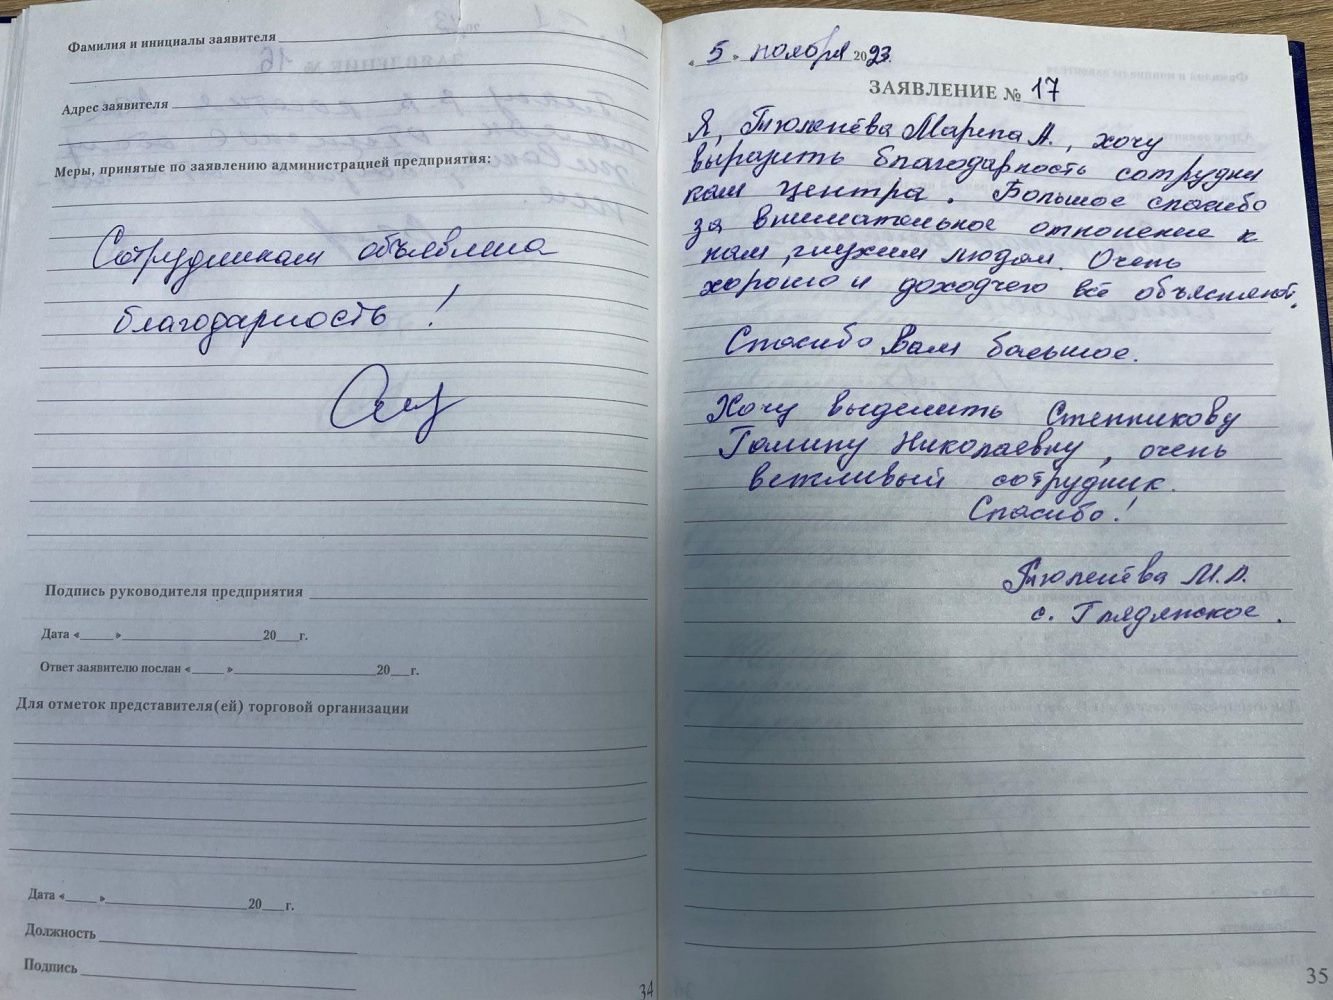 Фамилия и инициалы заявителя
Адрес заявителя
Меры, принятые по заявлению администрацией предприятия:
Сотрудникам объявлена
благодарность !
Подпись руководителя предприятия
Дата « » 20 г.
Ответ заявителю послан « » 20 г.
Для отметок представителя(ей) торговой организации
Дата « » 20 г.
Должность
Подпись
34
« 5 » ноября 2023.
ЗАЯВЛЕНИЕ № 17
Я, Тюленёва Марина А., хочу
выразить благодарность сотрудни
кам центра. Большое спасибо
за внимательное отношение к
нам, глухим людям. Очень
хорошо и доходчего всё объясняют.
Спасибо Вам большое.
Хочу выделить Степникову
Галину Николаевну, очень
вежливый сотрудник.
Спасибо!
Тюленёва М.А.
с. Глядянское.
35